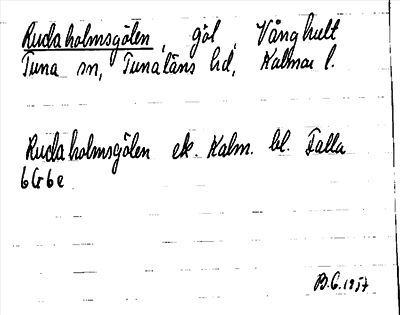 Rudaholmsgölen, göl, Vånghult
Tuna sn, Tunaläns hd, Kalmar l.
Rudaholmsgölen ek. Kalm. bl. Falla
6G6e
B.G.1957